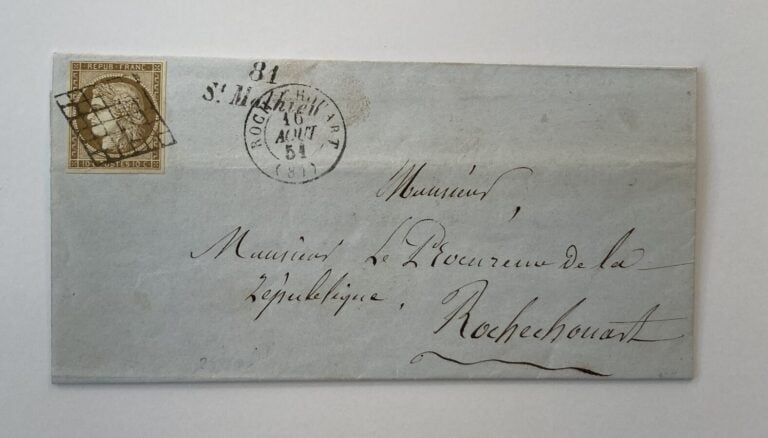 REPUB. FRANC.
10 C. POSTES 10 C.
81
St. Mathieu
ROCHECHOUART
16
AOUT
51
(81)
Monsieur,
Monsieur Le Procureur de la
République.
Rochechouart